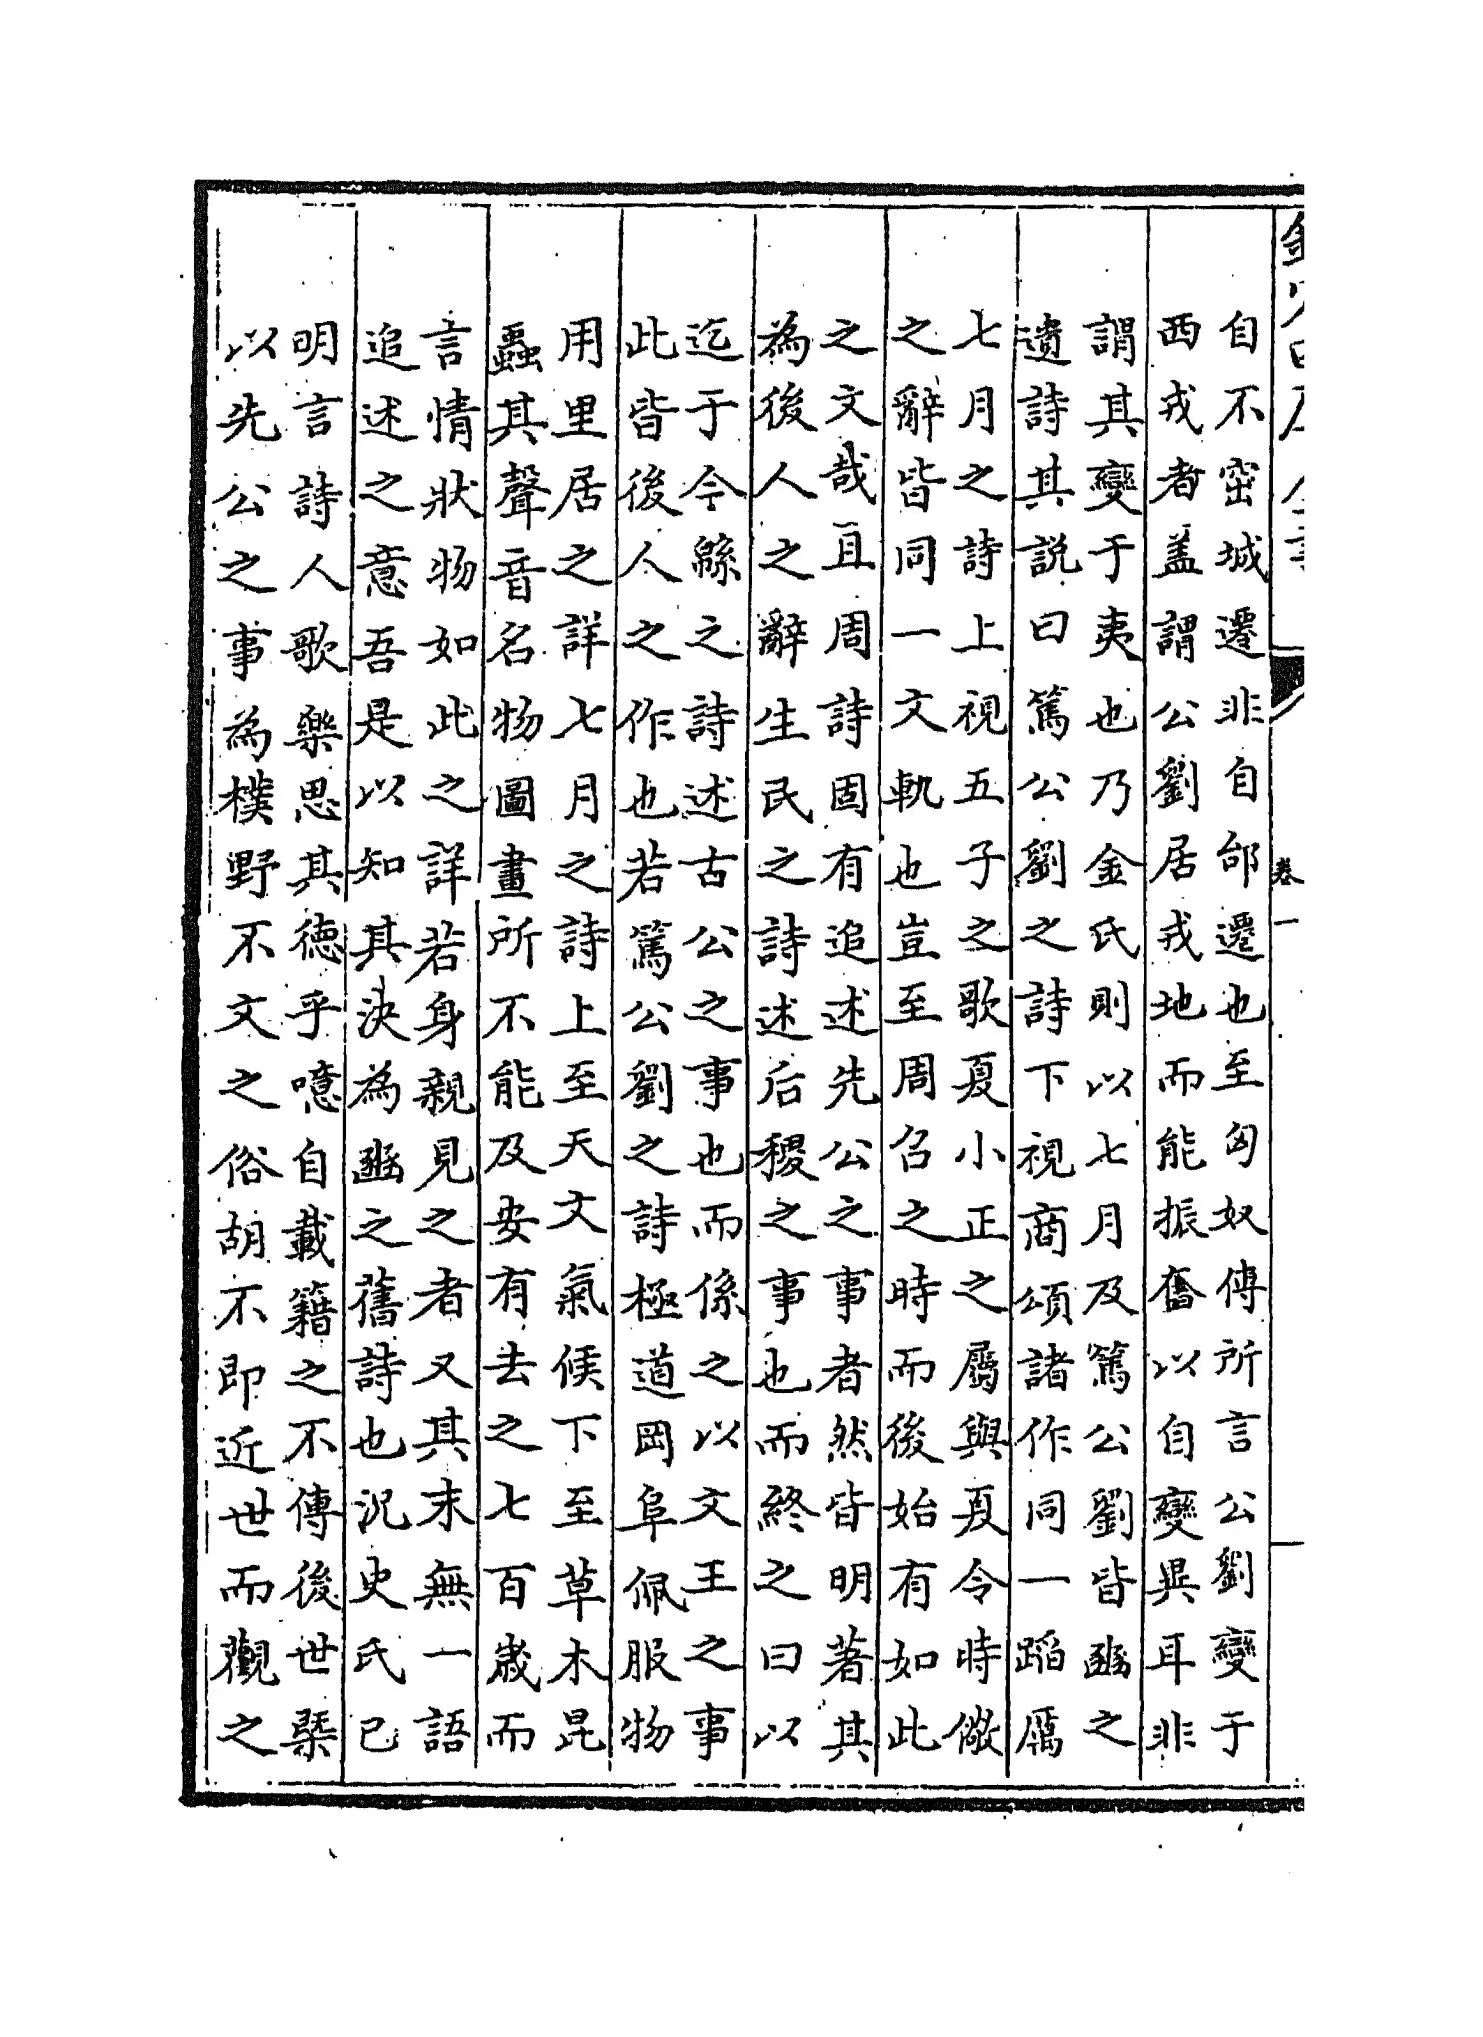 卷一
自不窋城遷非自邰遷也至匈奴傳所言公劉變于
西戎者盖謂公劉居戎地而能振奮以自變異耳非
謂其變于夷也乃金氏則以七月及篤公劉皆豳之
遺詩其説曰篤公劉之詩下視商頌諸作同一蹈厲
七月之詩上視五子之歌夏小正之屬與夏令時儆
之辭皆同一文軌也豈至周召之時而後始有如此
之文哉且周詩固有追述先公之事者然皆明著其
為後人之辭生民之詩述后稷之事也而終之曰以
迄于今緜之詩述古公之事也而係之以文王之事
此皆後人之作也若篤公劉之詩極道岡阜佩服物
用里居之詳七月之詩上至天文氣候下至草木昆
蟲其聲音名物圖畫所不能及安有去之七百歲而
言情狀物如此之詳若身親見之者又其末無一語
追述之意吾是以知其決為豳之舊詩也況史氏已
明言詩人歌樂思其德乎噫自載籍之不傳後世槩
以先公之事為樸野不文之俗胡不即近世而觀之